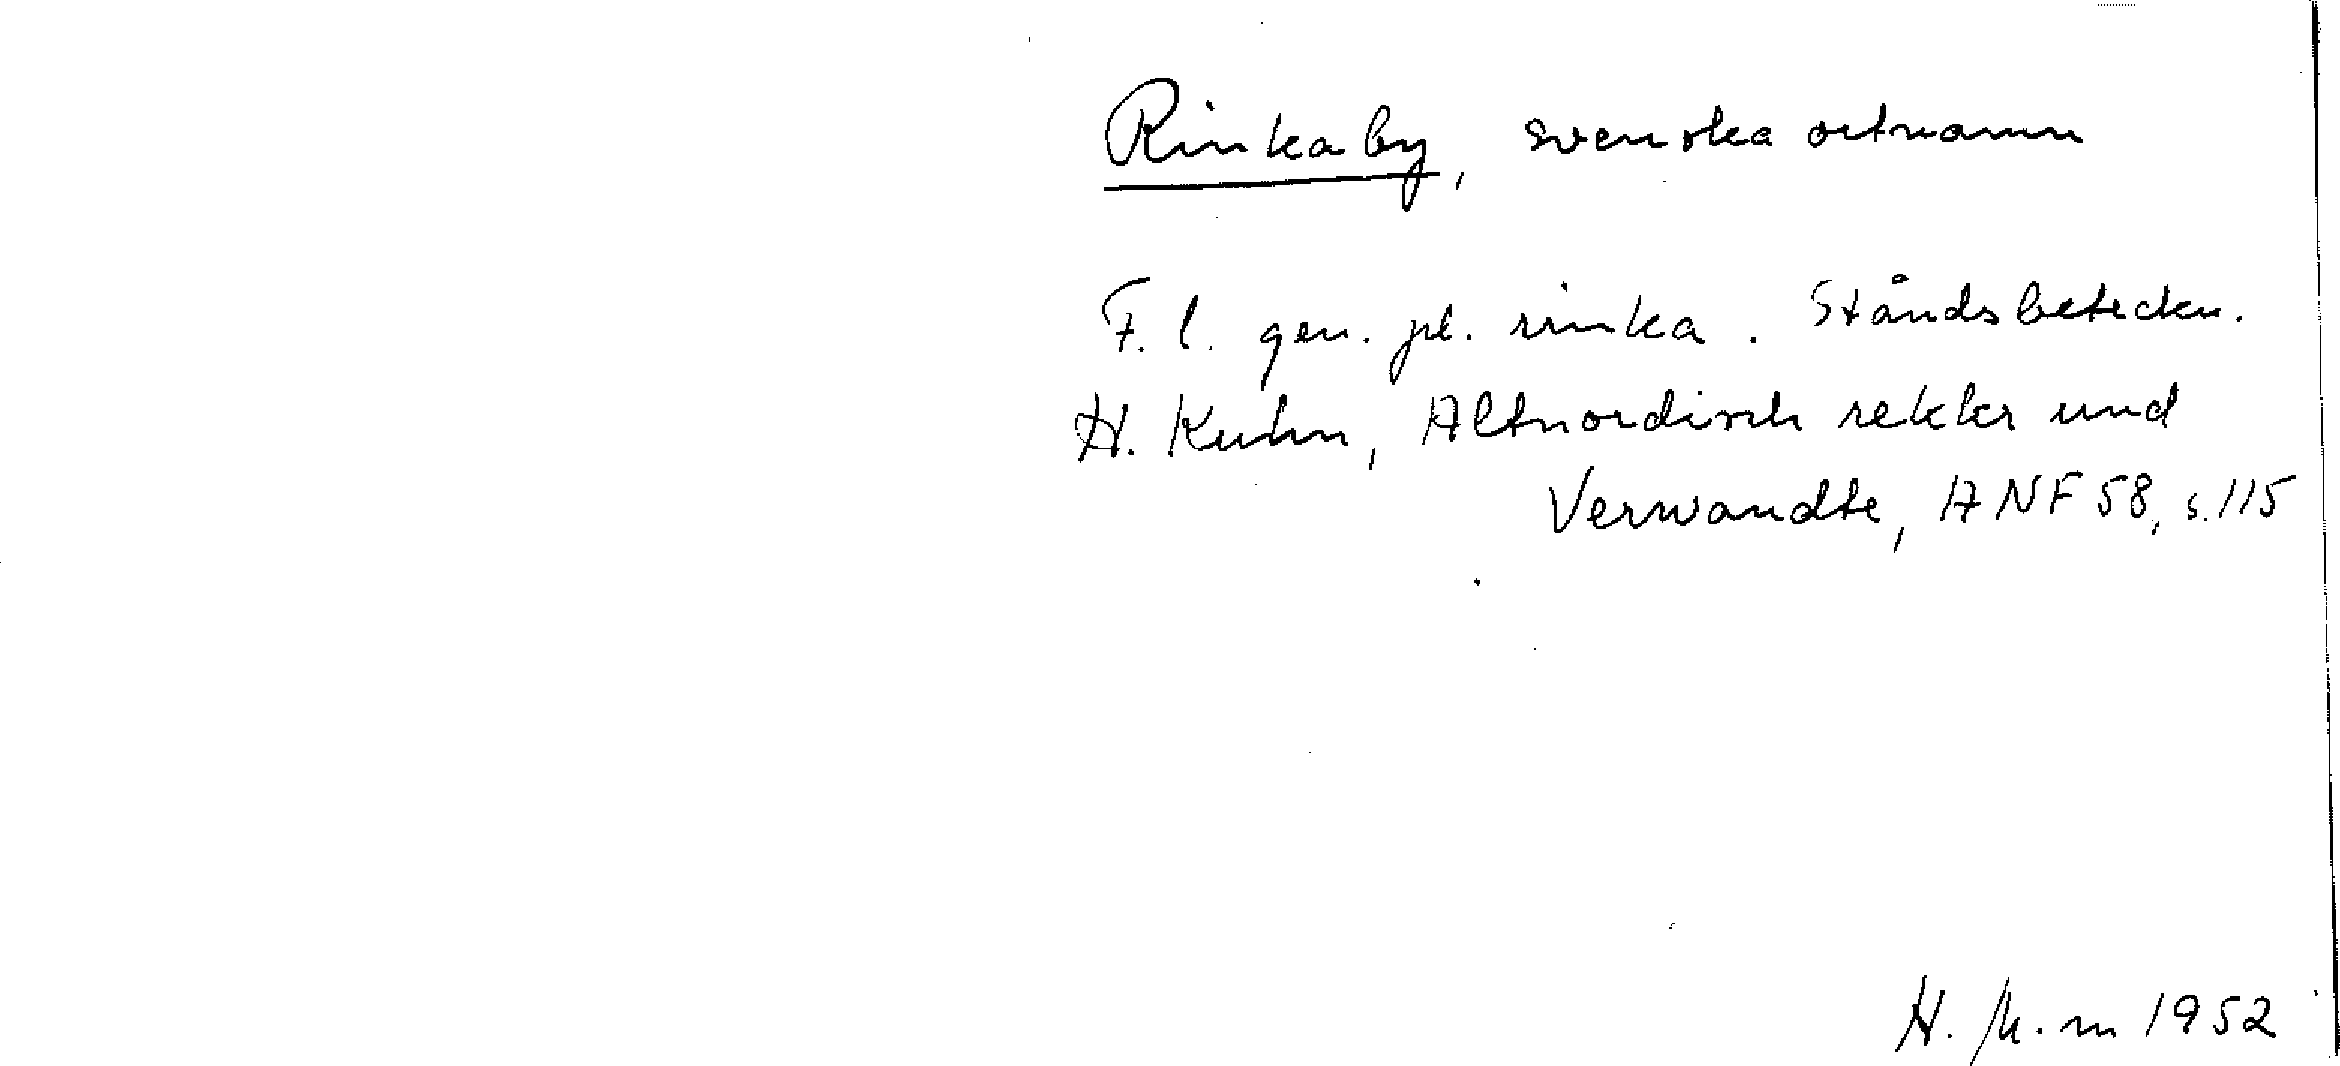 Rinkaby, svenska ortnamn
F. l. gen. pl. rinka. Ståndsbeteckn.
H. Kuhn, Altnordisch rekkr und
Verwandte, ANF 58, s. 115
H. M.m 1952